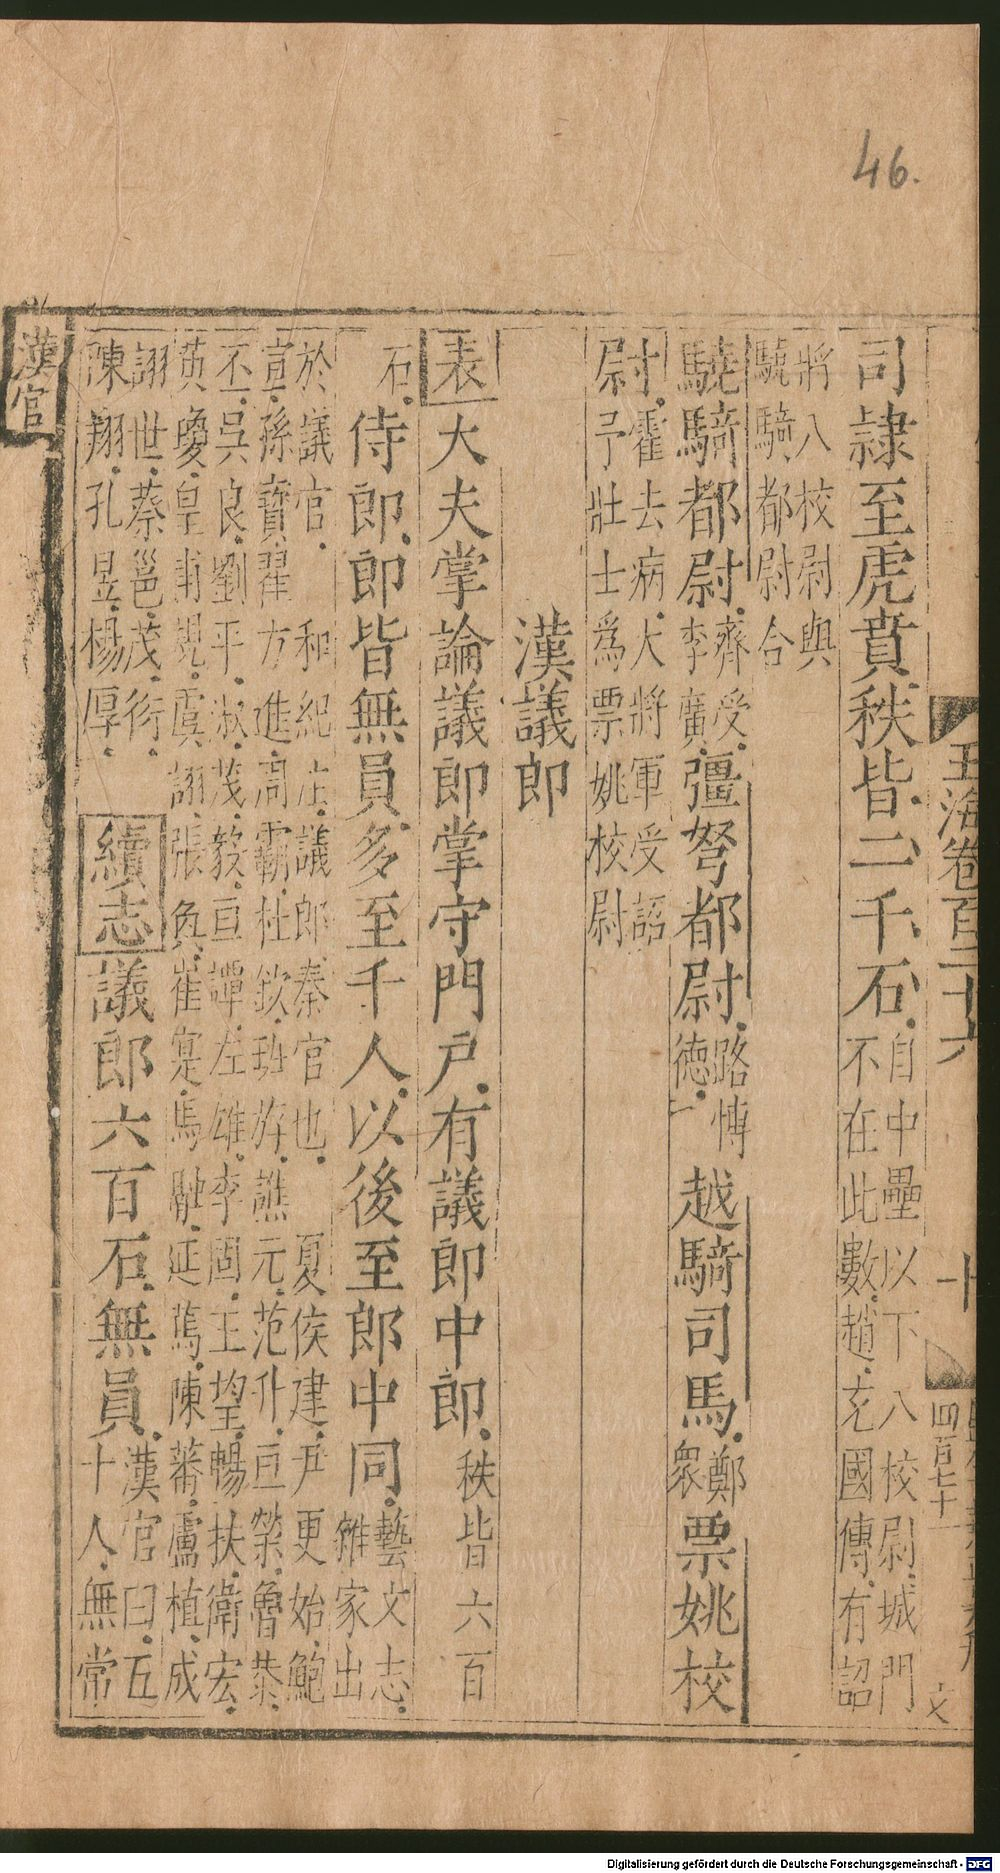 46.
玉海卷百三十六
十
四百七十一
文
司隸至虎賁秩皆二千石自中壘以下八校尉城門
不在此數趙充國傳有詔
將八校尉與
驍騎都尉合
驍騎都尉齊受
李廣
彊弩都尉路愽
德
越騎司馬鄭
眾
票姚校
尉霍去病大將軍受詔
予壯士為票姚校尉
漢議郎
表大夫掌論議郎掌守門戶有議郎中郎秩皆六百
石
侍郎郎皆無員多至千人以後至郎中同藝文志
雜家出
於議官
和紀注議郎秦官也
夏侯建尹更始鮑
宣孫寶翟方進高霸杜欽班斿譙元范升亘榮魯恭
丕吳良劉平淑茂毅亘譚左雄李固王望暢扶衛宏
黃瓊皇甫規虞詡張奐崔寔馬融延蔦陳蕃盧植成
詡世蔡邕茂衍
陳翔孔昱楊厚
續志議郎六百石無員漢官曰五
十人無常
漢官
Digitalisierung gefördert durch die Deutsche Forschungsgemeinschaft - DFG